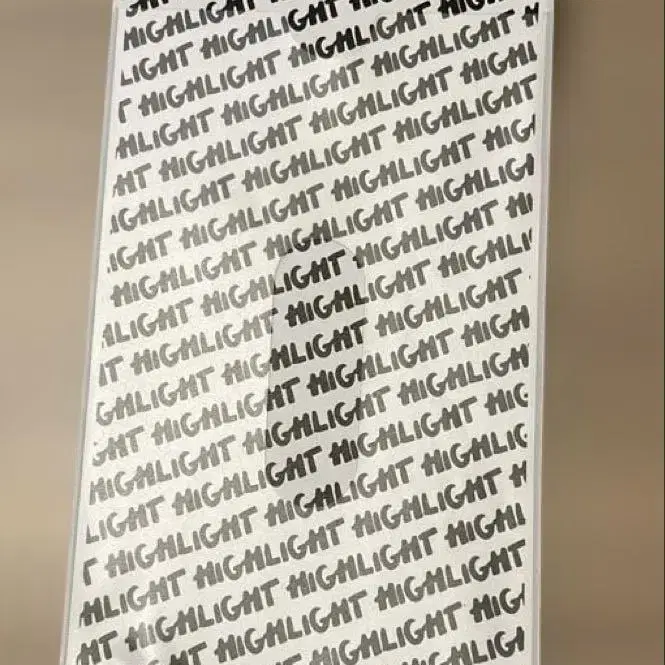 GHT
HIGHLIGHT HIGHLIGHT
LIGHT HIGHLIGHT HIGHLIGHT HIGHLIGHT
T HIGHLIGHT HIGHLIGHT HIGHLIGHT H
HLIGHT HIGHLIGHT HIGHLIGHT HIGHL
HT HIGHLIGHT HIGHLIGHT HIGHLIGHT
IGHLIGHT HIGHLIGHT HIGHLIGHT HIG
IGHT HIGHLIGHT HIGHLIGHT HIGHLIG
HIGHLIGHT HIGHLIGHT HIGHLIGHT HI
LIGHT HIGHLIGHT HIGHLIGHT HIGHLI
T HIGHLIGHT HIGHLIGHT HIGHLIGHT
GHLIGHT HIGHLIGHT HIGHLIGHT HIGH
GHT HIGHLIGHT HIGHLIGHT HIGHLIGH
HIGHLIGHT HIGHLIGHT HIGHLIGHT HIG
LIGHT HIGHLIGHT HIGHLIGHT HIGHLIG
T HIGHLIGHT HIGHLIGHT HIGHLIGHT H
HLIGHT HIGHLIGHT HIGHLIGHT HIGHL
HT HIGHLIGHT HIGHLIGHT HIGHLIGHT
HT HIGHLIGHT HIGHLIGHT HIG
HIGHLIG